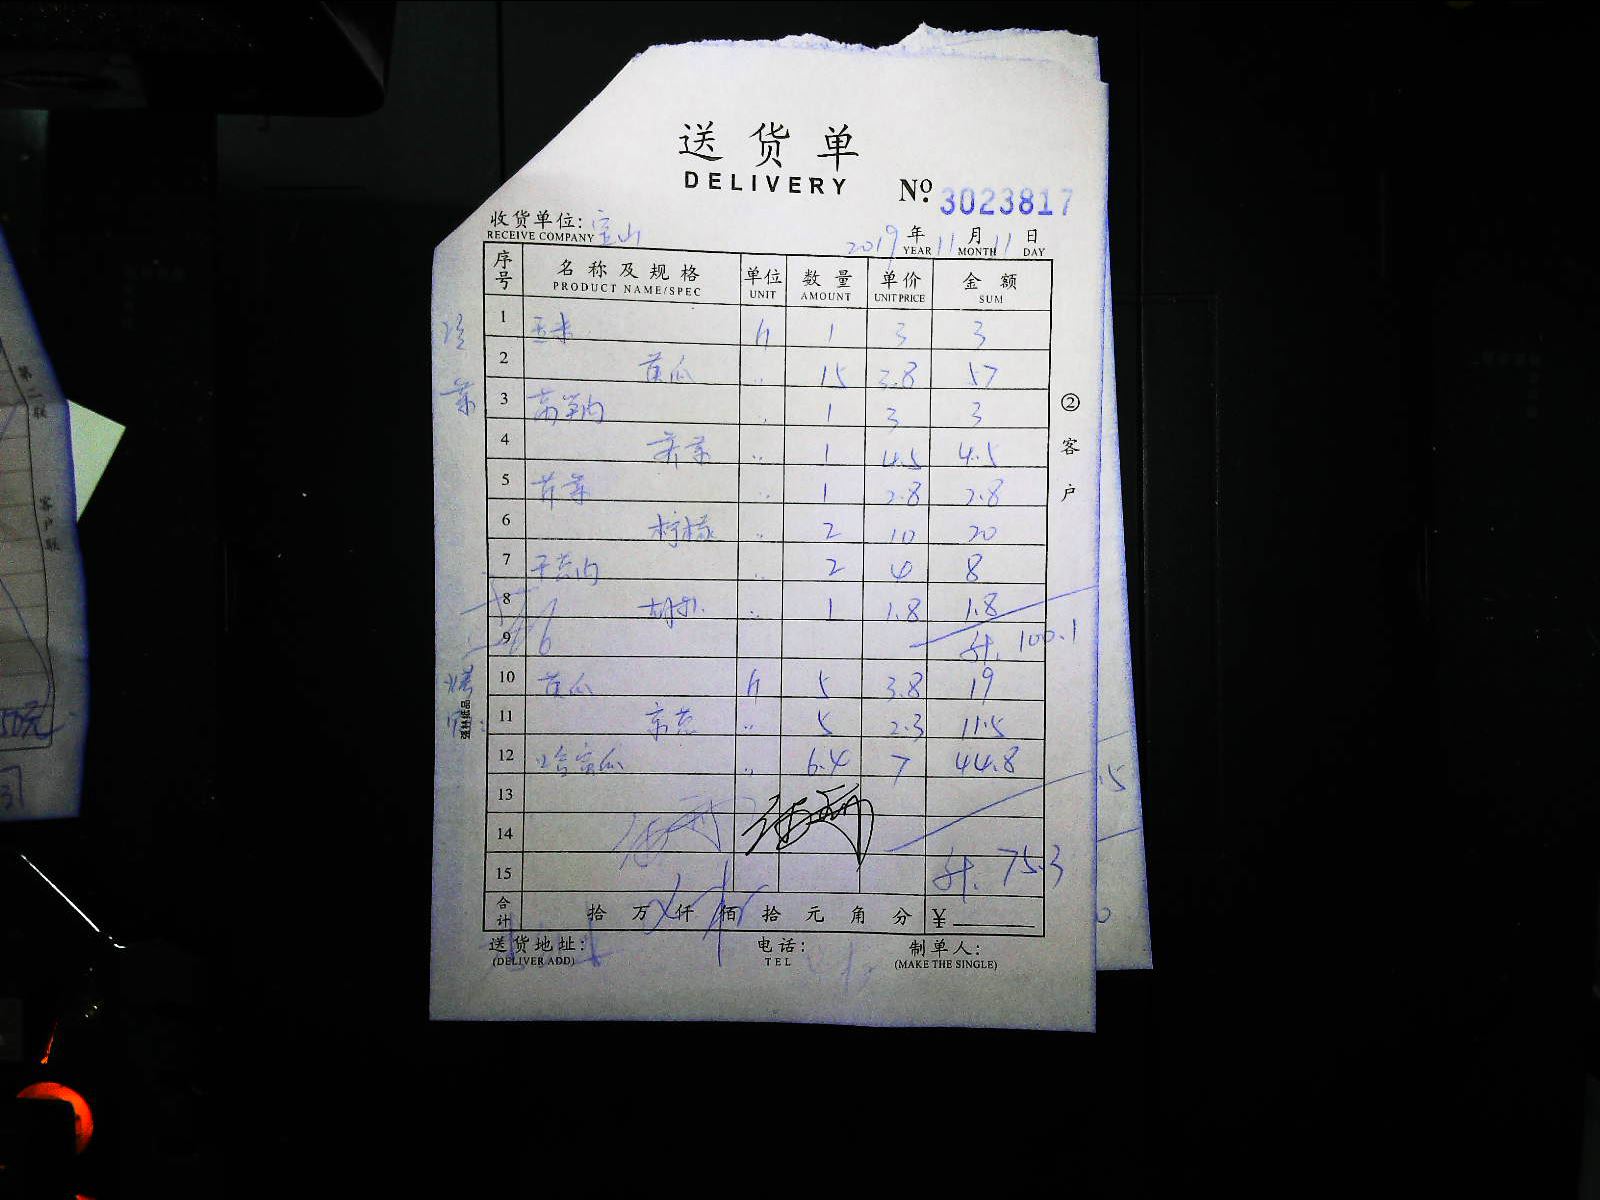 送货单
DELIVERY
№ 3023817
收货单位: 宝山
RECEIVE COMPANY
2019 年 11 月 11 日
YEAR MONTH DAY
序号 名称及规格 单位 数量 单价 金额
PRODUCT NAME/SPEC UNIT AMOUNT UNIT PRICE SUM
1 玉米 斤 1 3 3
2 黄瓜 〃 15 3.8 57
3 1 3 3
4 〃 1 4.5 4.5
5 芹菜 〃 1 2.8 2.8
6 柠檬 〃 2 10 20
7 〃 2 4 8
8 〃 1 1.8 1.8
9 计. 100.1
10 黄瓜 斤 5 3.8 19
11 京葱 〃 5 2.3 11.5
12 哈密瓜 〃 6.4 7 44.8
13
14
15 计. 75.3
合计 拾 万 仟 佰 拾 元 角 分 ¥
送货地址: 电话: 制单人:
(DELIVER ADD) TEL (MAKE THE SINGLE)
②客户
强林纸品
第二联
客户联
50元